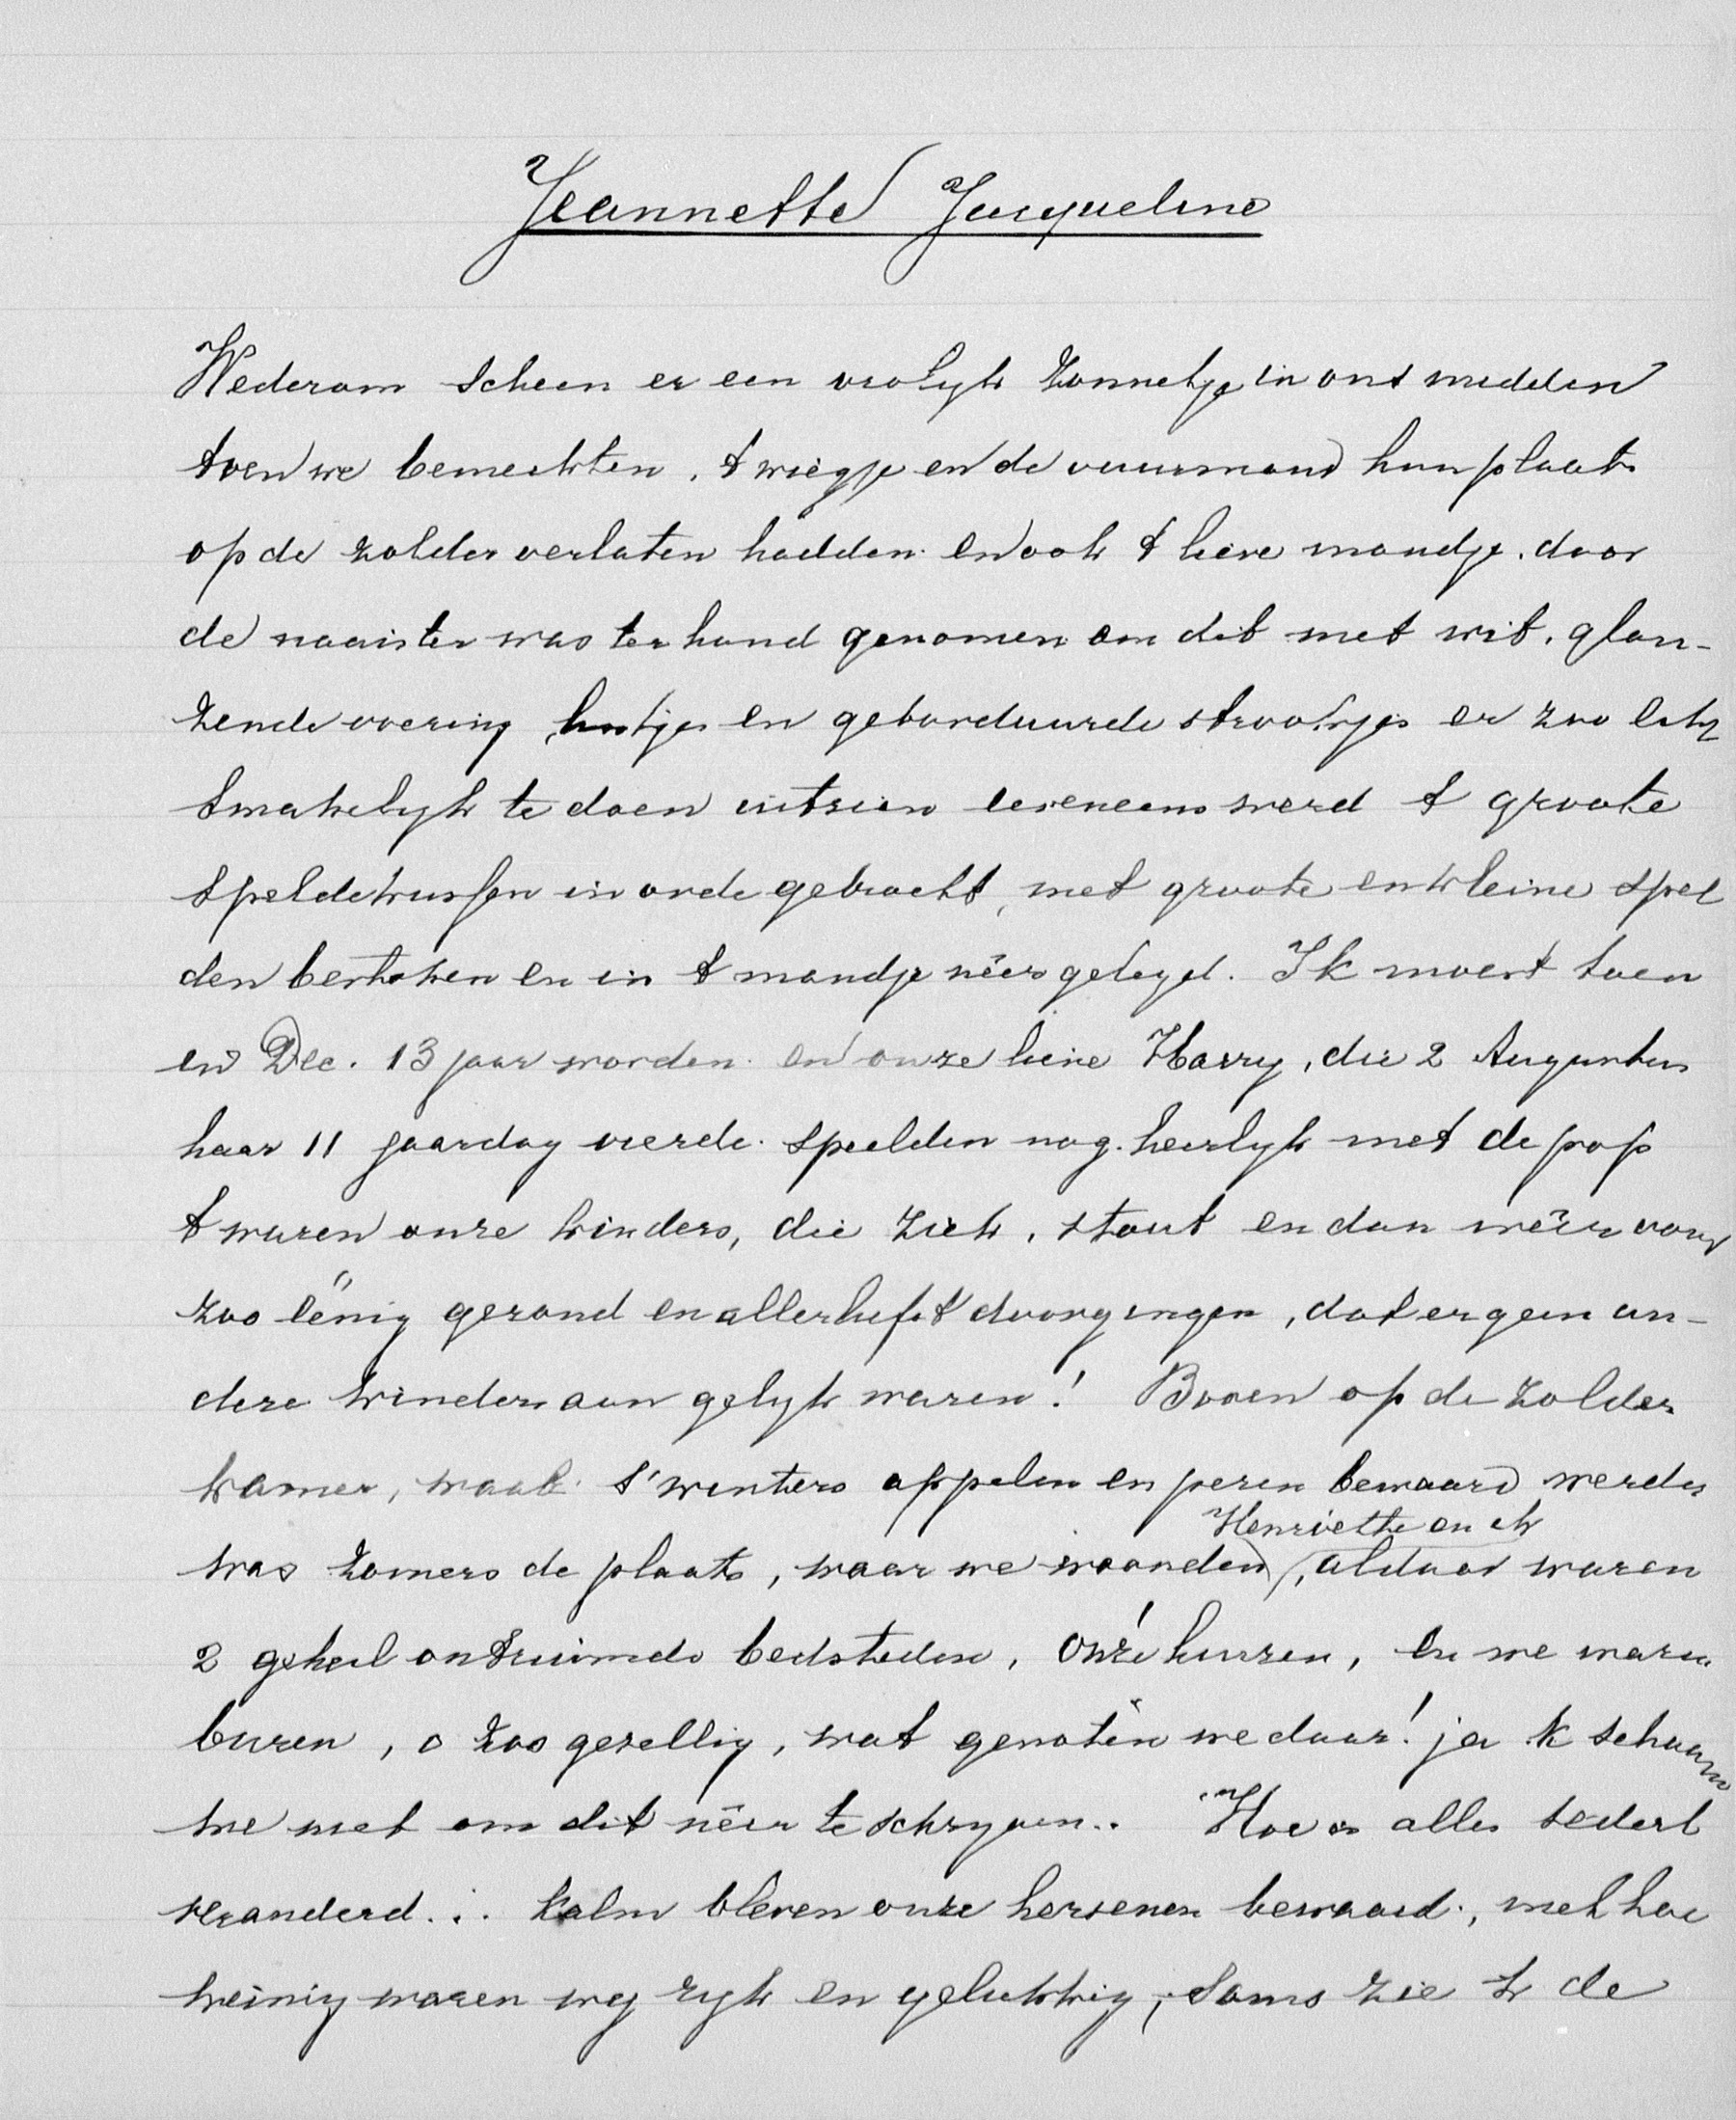 Jeannette Jacqueline
Wederom scheen er een vrolyk zonnetje in ons midden
toen we bemerkten, 't wiegje en de vuurmand hun plaats
op de zolder verlaten hadden en ook 't lieve mandje, door
de naaister was ter hand genomen om dit met wit, glan-
zende voering, lintjes en geborduurde strookjes er zoo echt
smakelyk te doen uitzien eveneens werd 't groote
speldekussen in orde gebracht, met groote en kleine spel
den bestoken en in 't mandje neêr gelegd. Ik moest toen
in Dec. 13 jaar worden en onze lieve Harry, die 2 Augustus
haar 11 jaardag vierde. speelden nog heerlyk met de pop
't waren onze kinders, die ziek, stout en dan weêr voor
zoo eenig gezond en allerliefst doorgingen, dat er geen an-
dere kinderen aan gelyk waren! Boven op de zolder
kamer, waar 's winters appelen en peren bewaard werden
Henriette en ik
was zomers de plaats, waar we woonden, aldaar waren
2 geheel ontruimde bedsteden, onze huizen, en we waren
buren, o zoo gezellig, wat genoten we daar! ja 'k schaam
me niet om dit neêr te schryven.. Hoe is alles sedert
veranderd... kalm bleven onze hersenen bewaard, met hoe
weinig waren wy ryk en gelukkig, soms zie 'k de